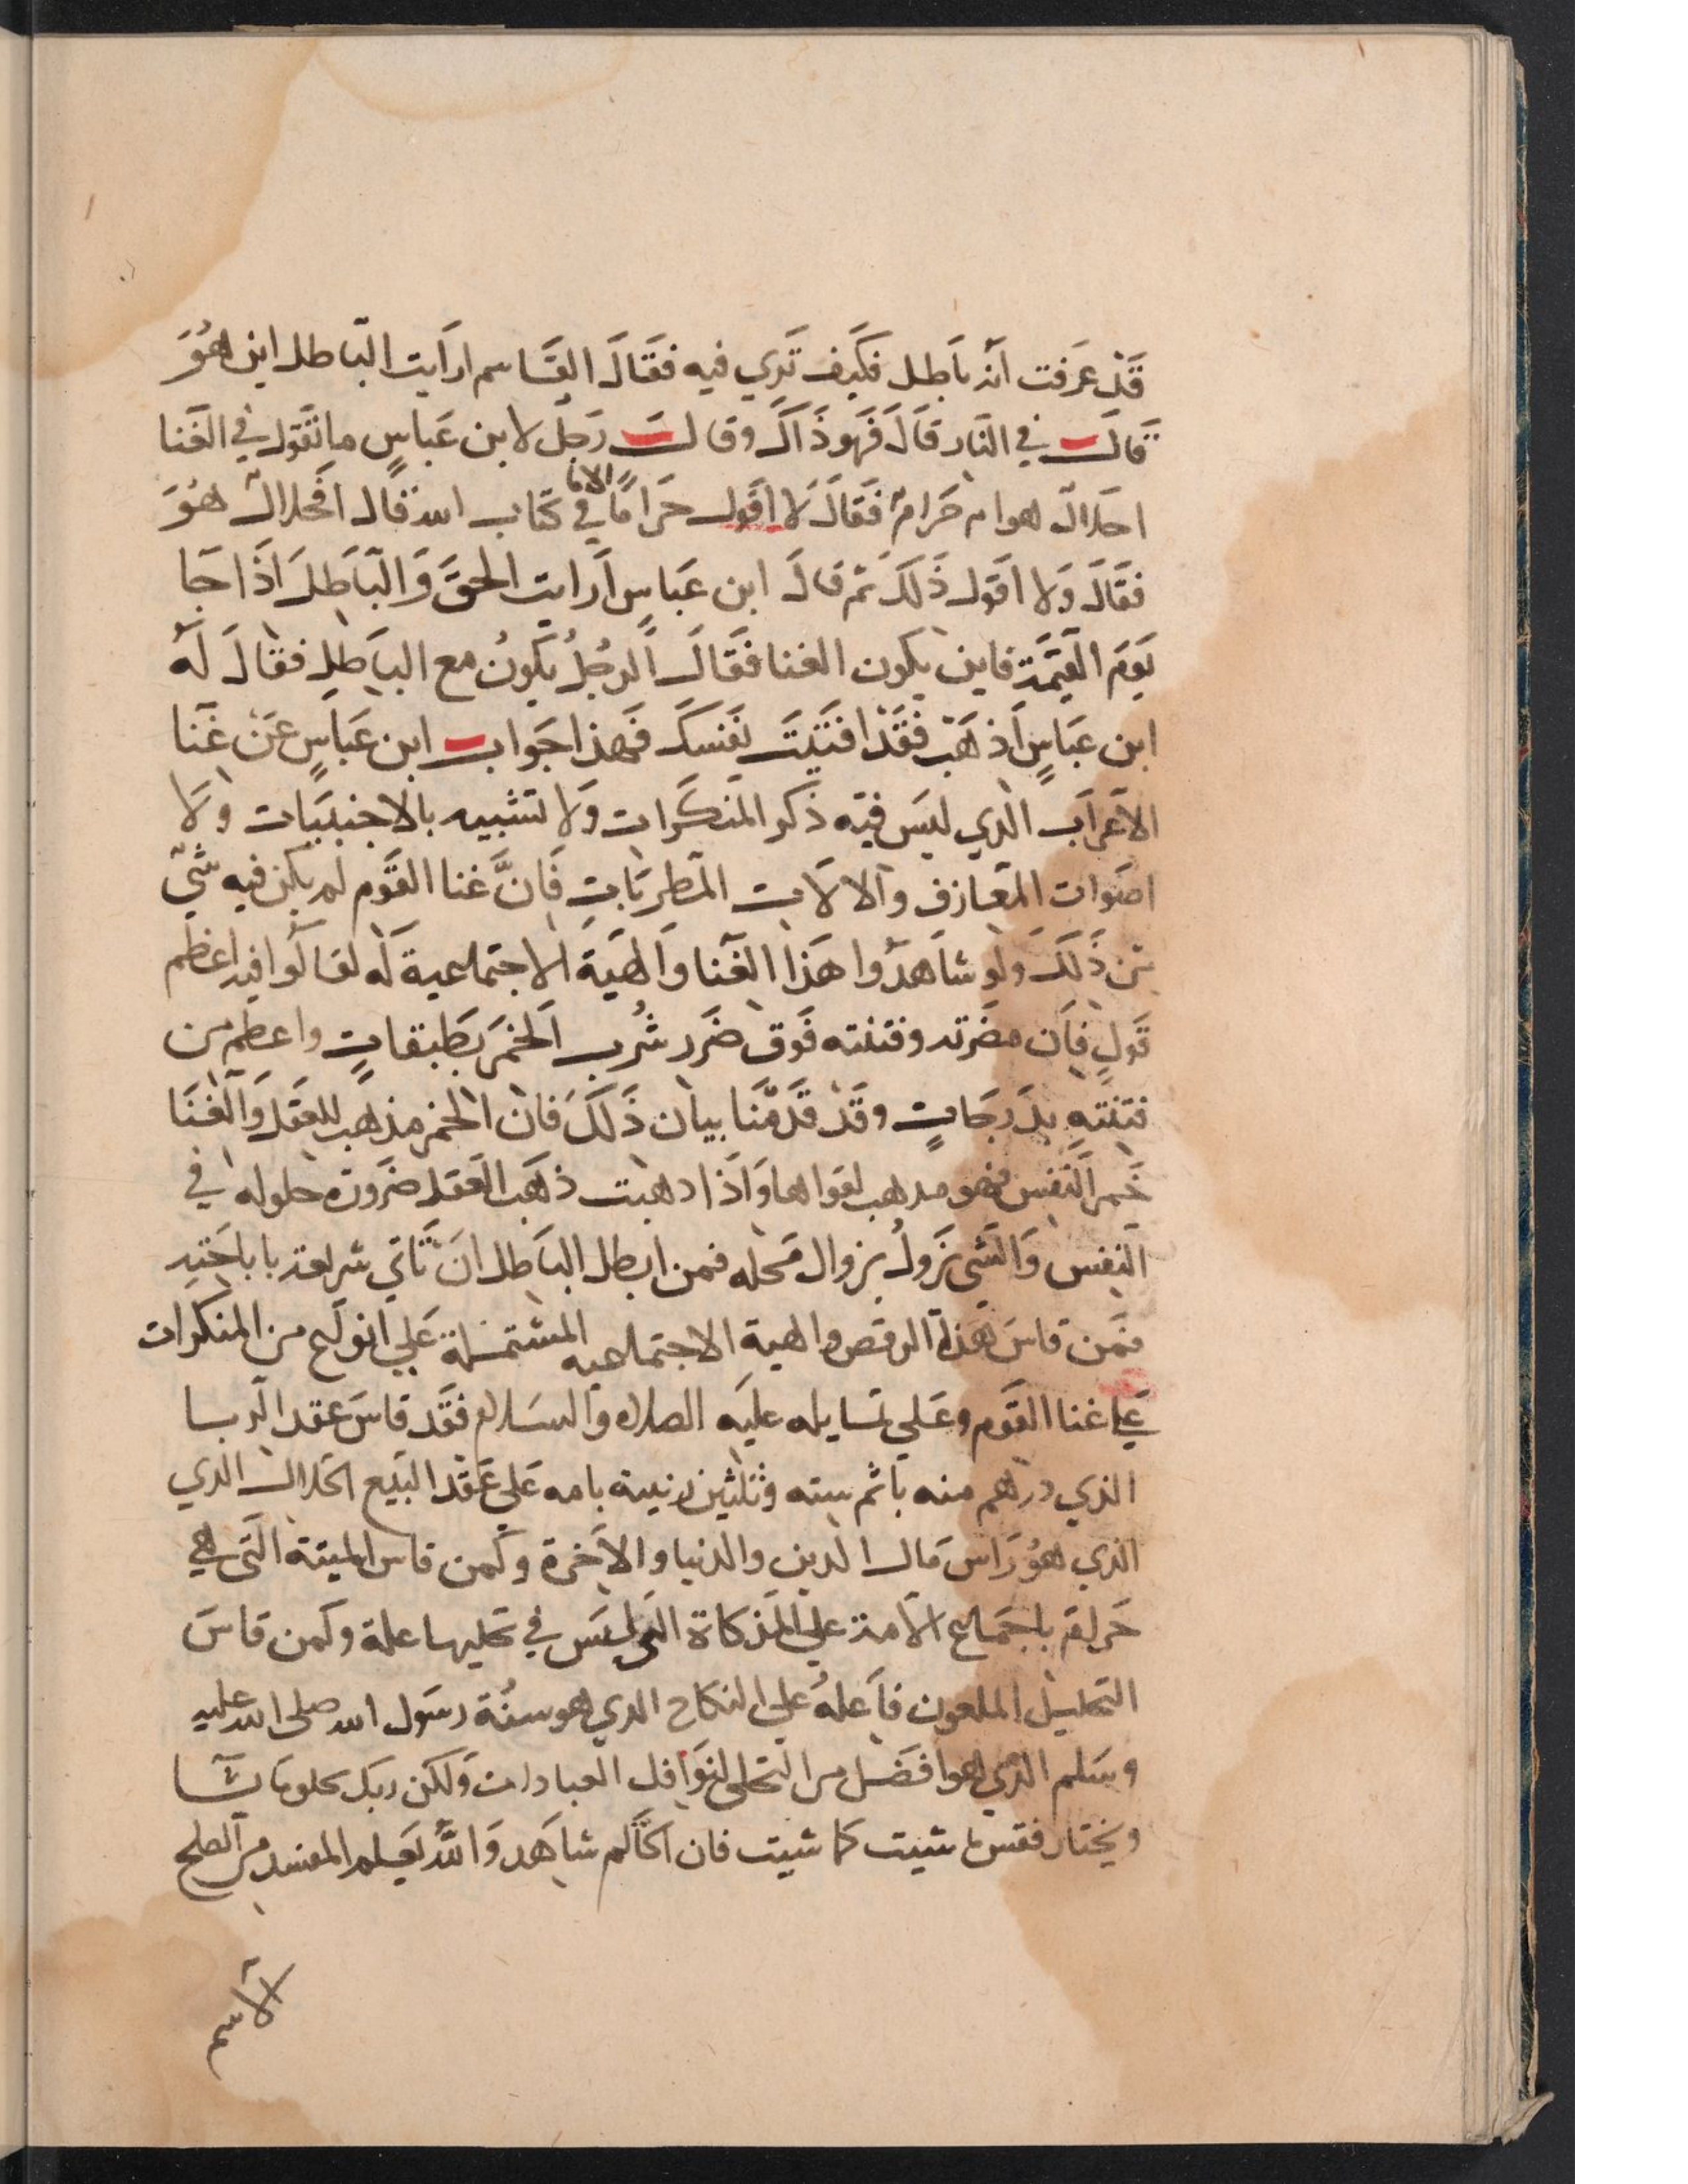 قَدْ عَرَفت انه بَاطِل فكَيف تَري فيه فقَالَ القَاسم ارَايت البَاطل اين هُوَ
قَالَ في النَار قَالَ فَهو ذَاكَ وقال رَجل لابن عَباسٍ ما تقَول في الغَنا
احَلال هو ام حَرام فَقَالَ لَا اقَول حَرامًا الا ما في كتَاب الله قال افحَلال هُوَ
فقَالَ وَلا اقَول ذَلكَ ثم قالَ ابن عَباسٍ اَرايت الحقَ وَالبَاطِلَ اذَا جَا
يَومَ القيَمة فاين يكون الغنا فقَالَ الرجُل يكَونُ مع البَاطِلِ فقالَ لَه
ابن عَباسٍ اَذهَب فقَد افتَيتَ نفَسكَ فَهذا جَواب ابن عَباسٍ عَنْ غَنا
الاَعرَاب الَذي ليسَ فيَه ذكر المنكَرات وَلا تشبيه بالاجنبيَات وَلَا
اصَوات المعَازف والالَات المَطربَاتِ فَانَّ غنا القَوم لم يكن فيه شَي
من ذَلكَ ولو شاهَدُوا هَذا الغَنا وَالهيَة الاجتماعية لَه لقالَوا فيه اعظم
قَولٍ فاِن مضَرته وفتنته فَوق ضَرر شُرب الخَمَر بَطبقاتٍ واعظم من
فتنتَهِ بدَرجَاتٍ وقَدْ قَدمَّنا بيان ذَلكَ فان الخَمر مذهب للعقَل وَالغنَا
خَمر النَفس فهو مدهب لقواها وَاذَا دهبت ذهَب العَقل ضَرورَة حلوله في
النفس وَالشَي يَزولُ بزوال محَله فمن ابطل البَاطل انَ تَاتي شريعة باباحَته
فمَن قاسَ هَذا الرقص والهية الاجتماعيه المشتمَلة عَلي انواع من المنكرات
عَلي غنا القَوم وعَلي تمَايله علَيه الصلاه وَالسَلام فقَد قاسَ عقد الربا
الذي درهم منه باثم سته وثلثين زنية بامه عَلي عَقد البيَع الحَلال الذي
الذي هوُ رَاسَ مَال الدين والدنيا والاَخرة وكَمن قاس الميتة التَي هي
حَرام باجمَاع الاَمة علي المَذكاة التي ليسَ في تحليها علة وكَمن قاسَ
التحليل الملعون فَاعلهُ علي النكاح الدي هو سنُة رسَول الله صلي الله عليه
وسَلم الذي هو افضَل من التخلي لنَوافل العبادات وَلكن ربك يخلو ما يشَا
ويختار فقس ما شيت كما شيت فان اكَالم شاهَد وَاللهُ يعَلم المفسد من المصلح
الاسم